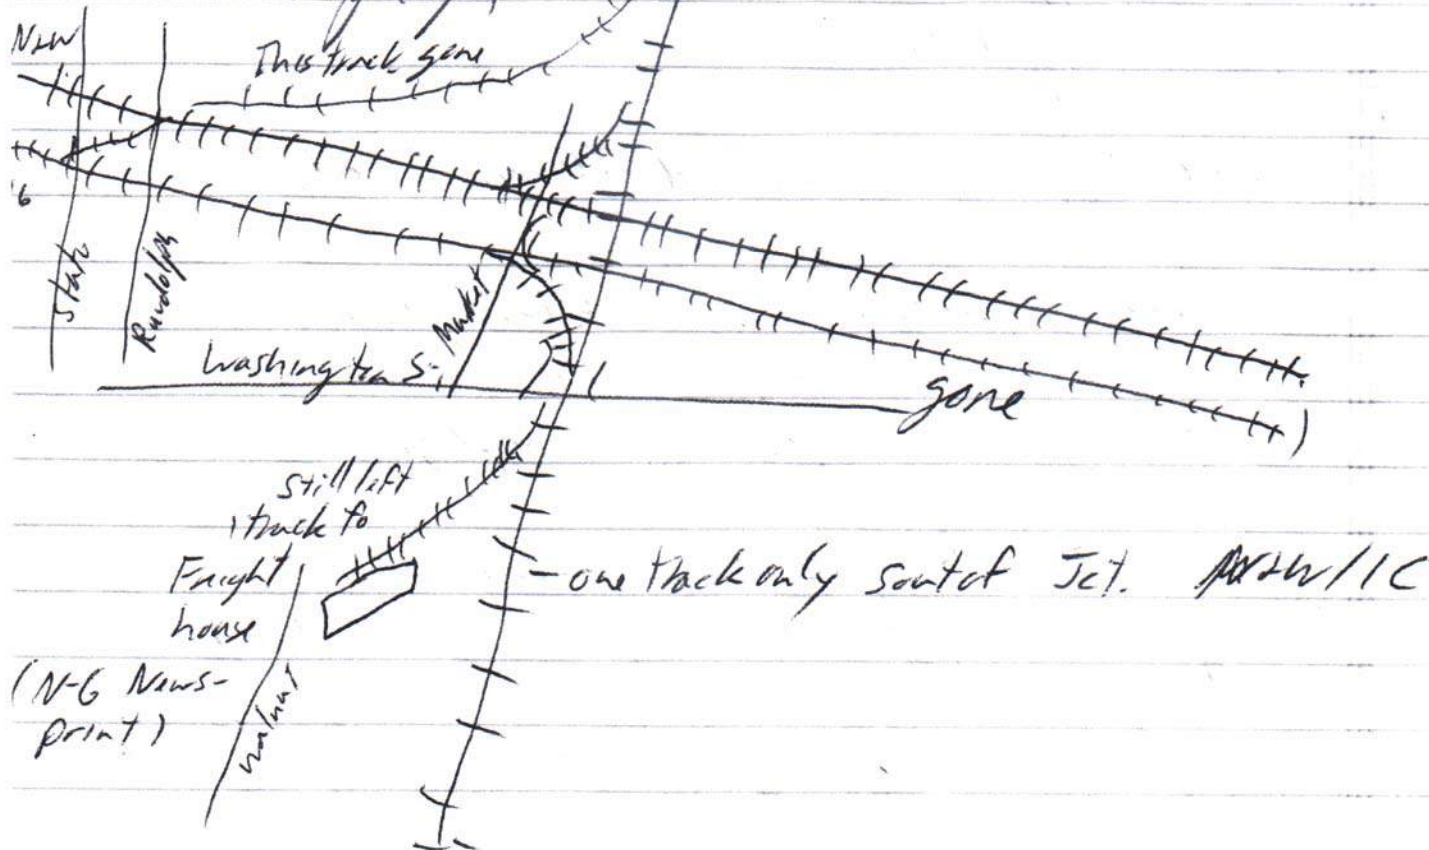 New
This track gone
State
Randolph
Market
Washington St.
gone
still left
track to
Freight
house
(N-G News-
print)
Walnut
- one track only sout of Jct. N&W/IC